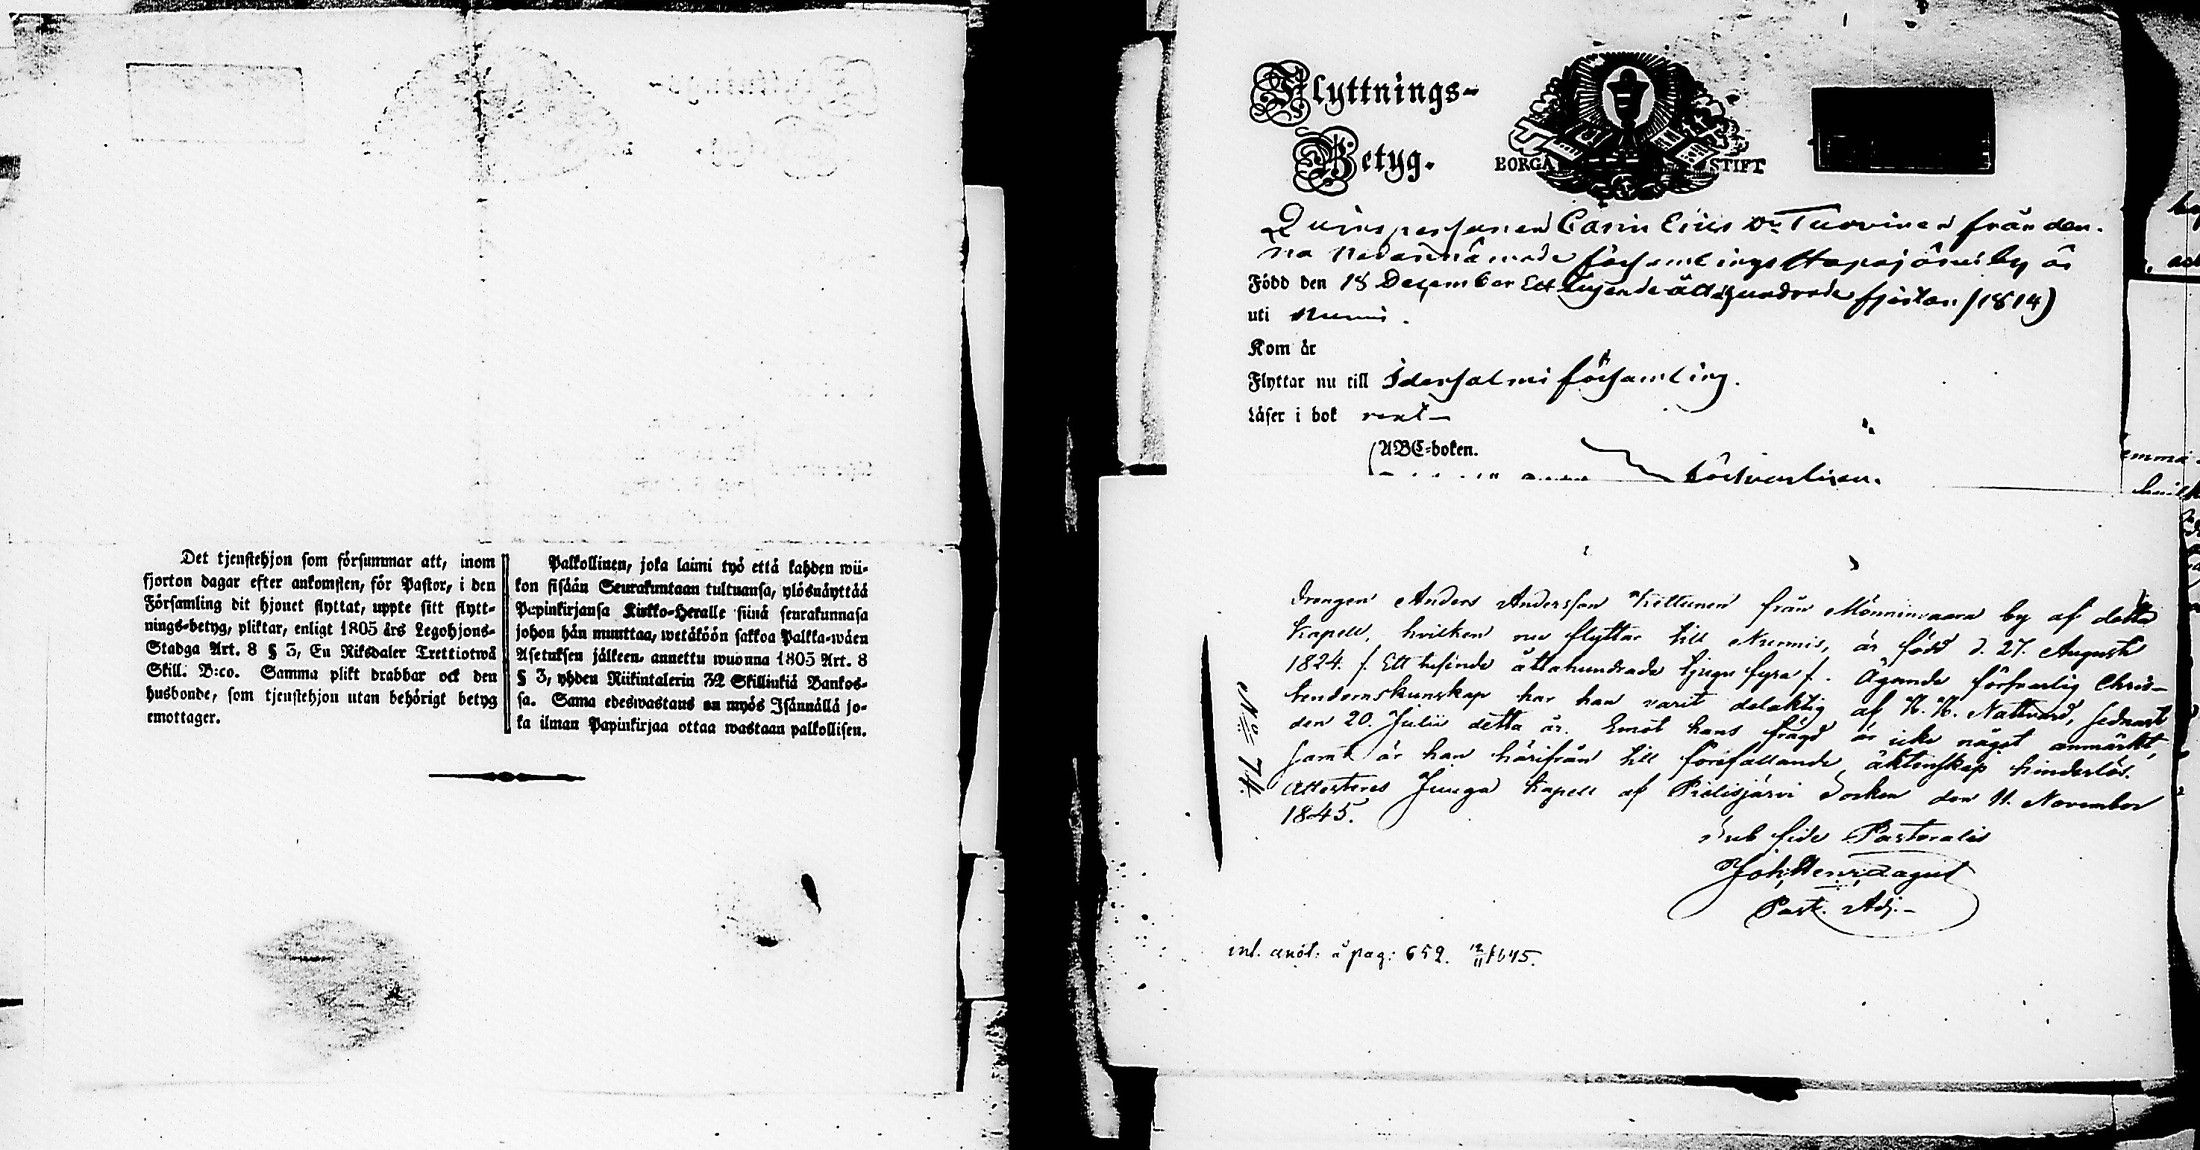 Det tjenstehjon som försummar att, inom
fjorton dagar efter ankomsten, för Pastor, i den
Församling dit hjonet flyttat, uppte sitt flytt-
nings-betyg, pliktar, enligt 1805 års Legohjons-
Stadga Art. 8 § 3, En Riksdaler Trettiotwå
Skill. B:co. Samma plikt drabbar ock den
husbonde, som tjenstehjon utan behörigt betyg
emottager.
Palkollinen, joka laimi työ että kahden wii-
kon sisään Seurakuntaan tultuansa, ylösnäyttää
Papinkirjansa Kirkko-Herralle siinä seurakunnasa
johon hän muuttaa, wetäköön sakkoa Palkka-wäen
Asetuksen jälkeen, annettu wuonna 1805 Art. 8
§ 3, yhden Riikintalerin 32 Skillinkiä Bankos-
sa. Sama edeswastaus on myös Isännällä jo-
ka ilman Papinkirjaa ottaa wastaan palkollisen.
Flyttnings-
Betyg.
BORGÅ STIFT
Qvinspersonen Carin Ericsdr Turvinen från den-
na nedannämnde församlings Hapajärvi by är
Född den 18 December Ett tusende åttahundrade fjorton (1814)
uti Nurmis.
Kom år
Flyttar nu till Idensalmi församling.
Läser i bok rent
ABC-boken.
försvarligen.
Drengen Anders Andersson Kettunen från Mönninvaara by af detta
Kapell, hvilken nu flyttar till Nurmis, är född d. 27. Augusti
1824. /. Ett tusende åttahundrade tjugu fyra /. Ägande försvarlig Chris-
tendomskunskap har han varit delaktig af H. H. Nattvard, sednast
den 20. Julii detta år. Emot hans frägd är icke något anmärkt,
samt är han härifrån till förefallande äktenskap hinderlös.
Attesteras Juuga Kapell af Pielisjärvi Socken den 11. November
1845.
Sub fide Pastorali
Joh. Henr. Lagus
Past. Adj.
No 74
inl. anöt: å pag: 652. 12/11 1845.